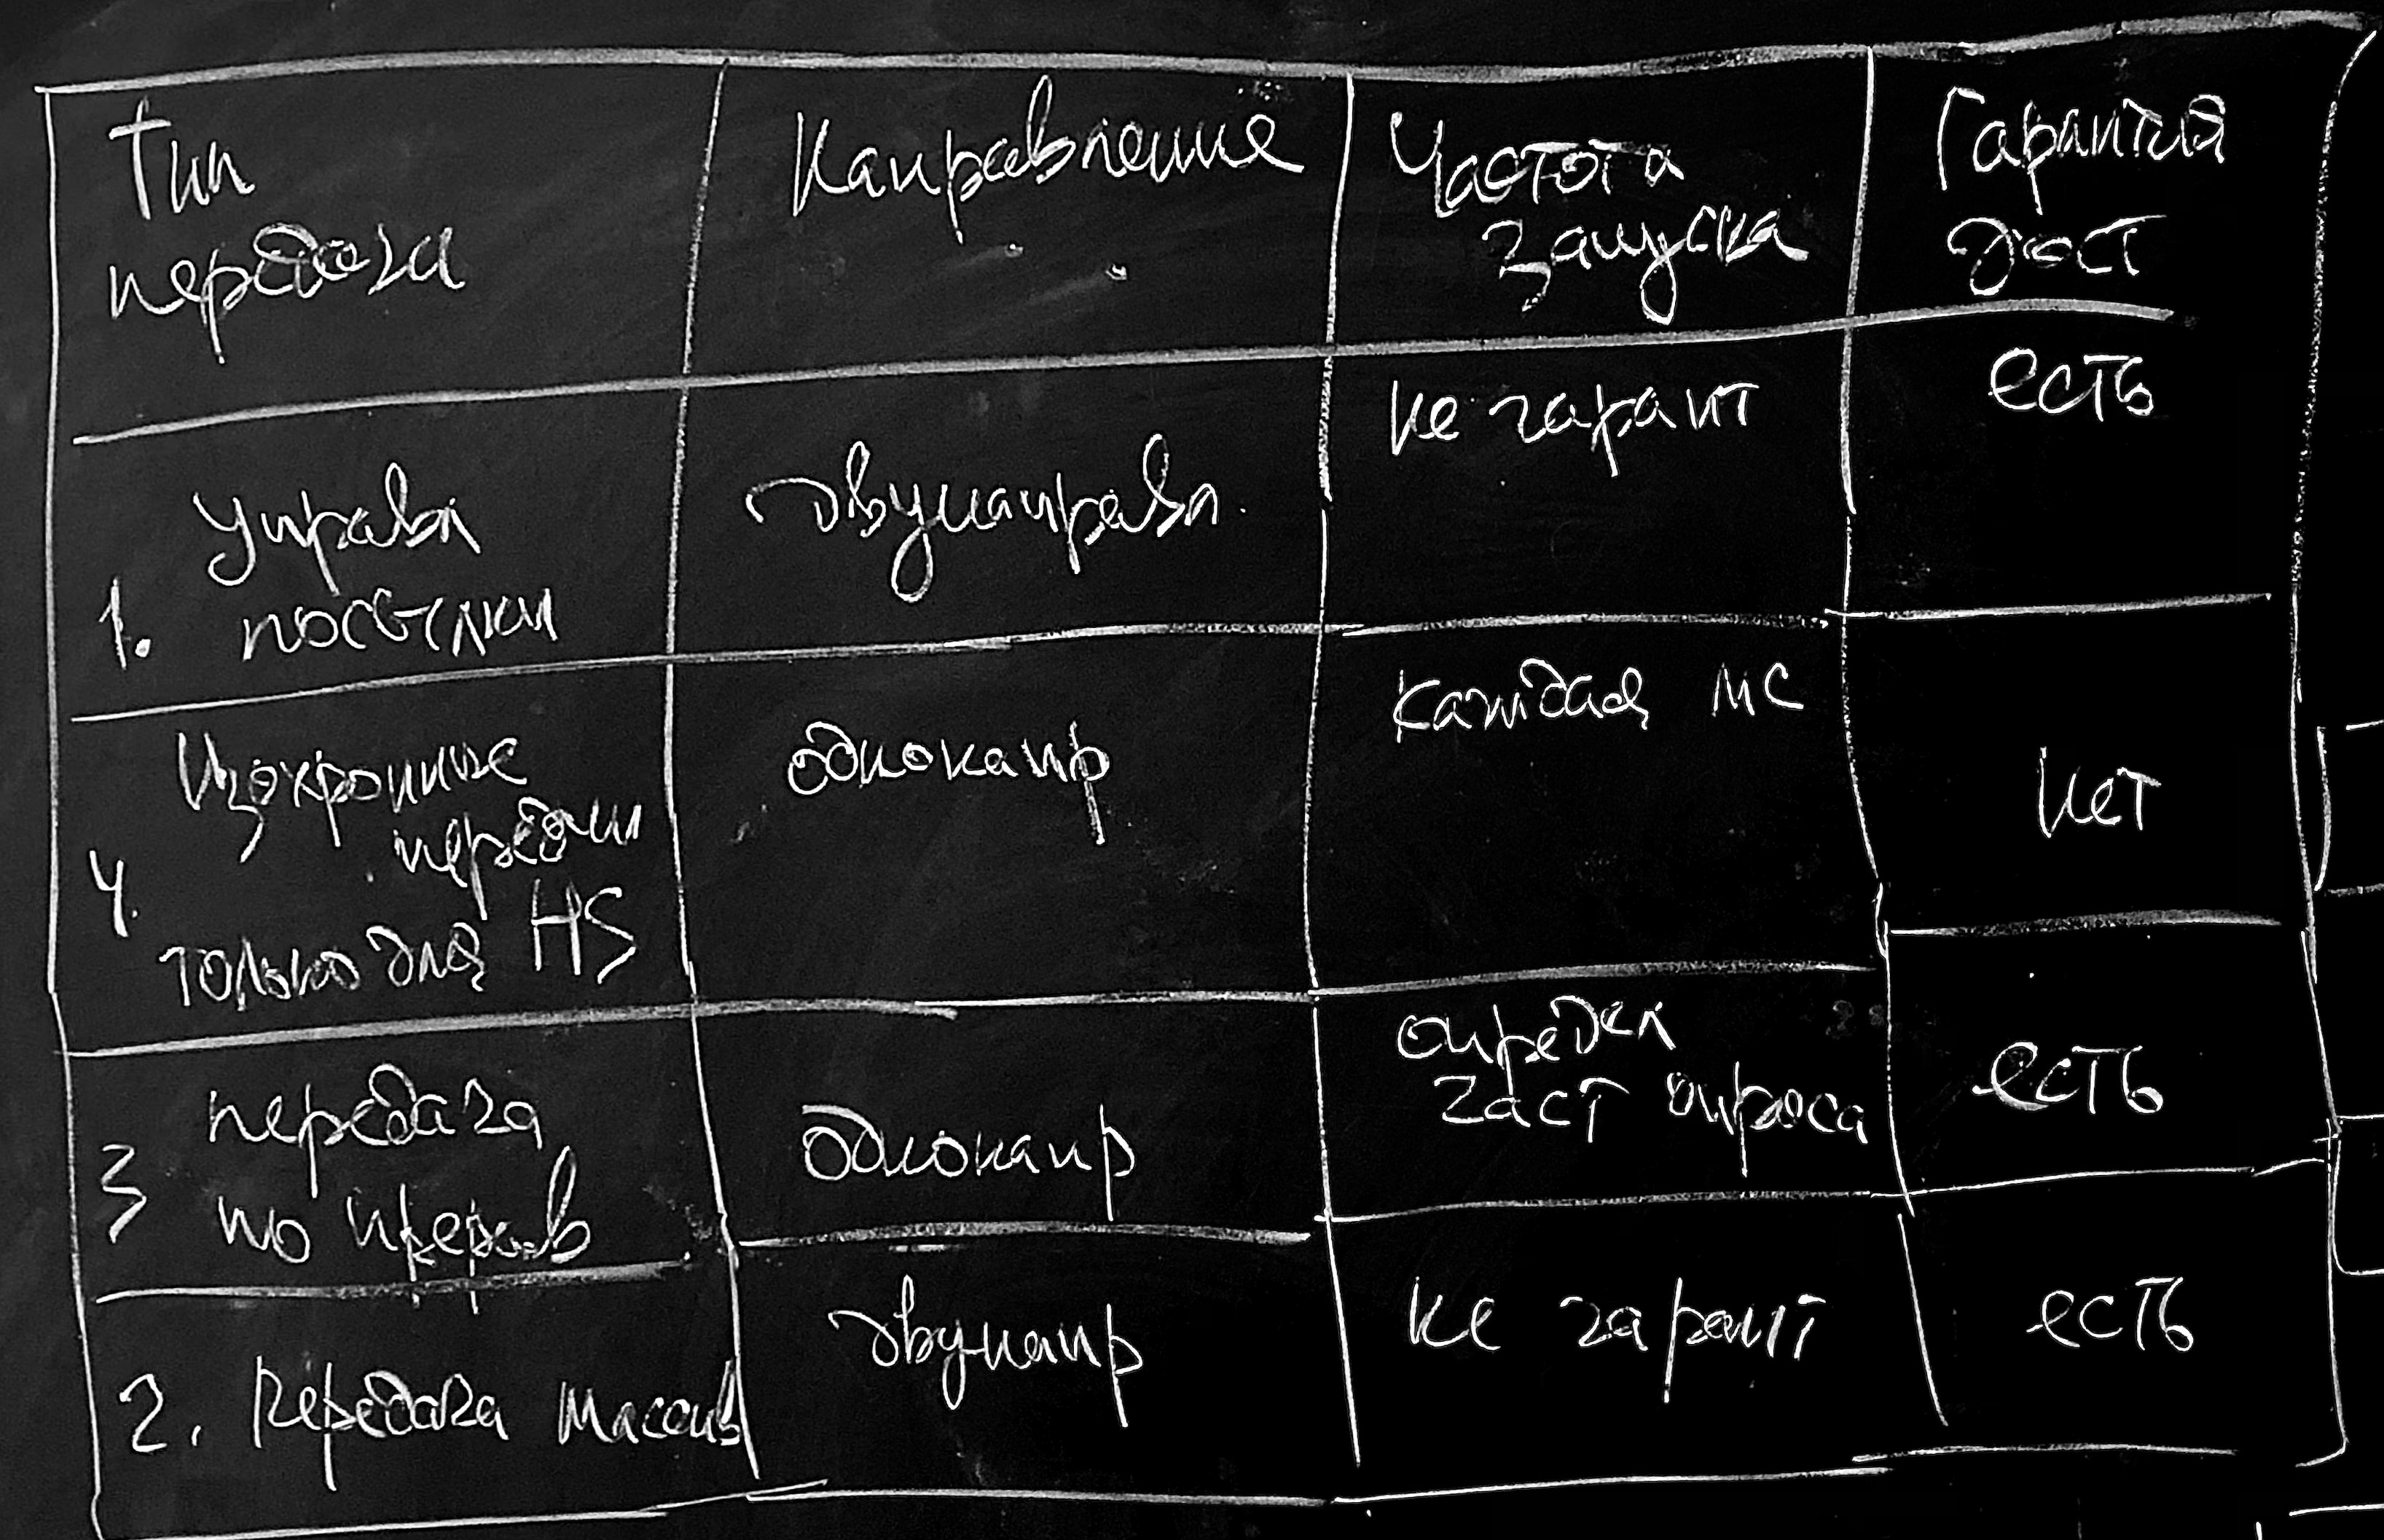 Тип
передачи
Направление
Частота
запуска
Гарантия
дост
1. Управл
посылки
двунаправл.
не гарант
есть
Изохронные
4. передачи
только для HS
однонапр
каждая мс
нет
3 передача
по прерыв
однонапр
определ
част опроса
есть
2. Передача массив
двунапр
не гарант
есть